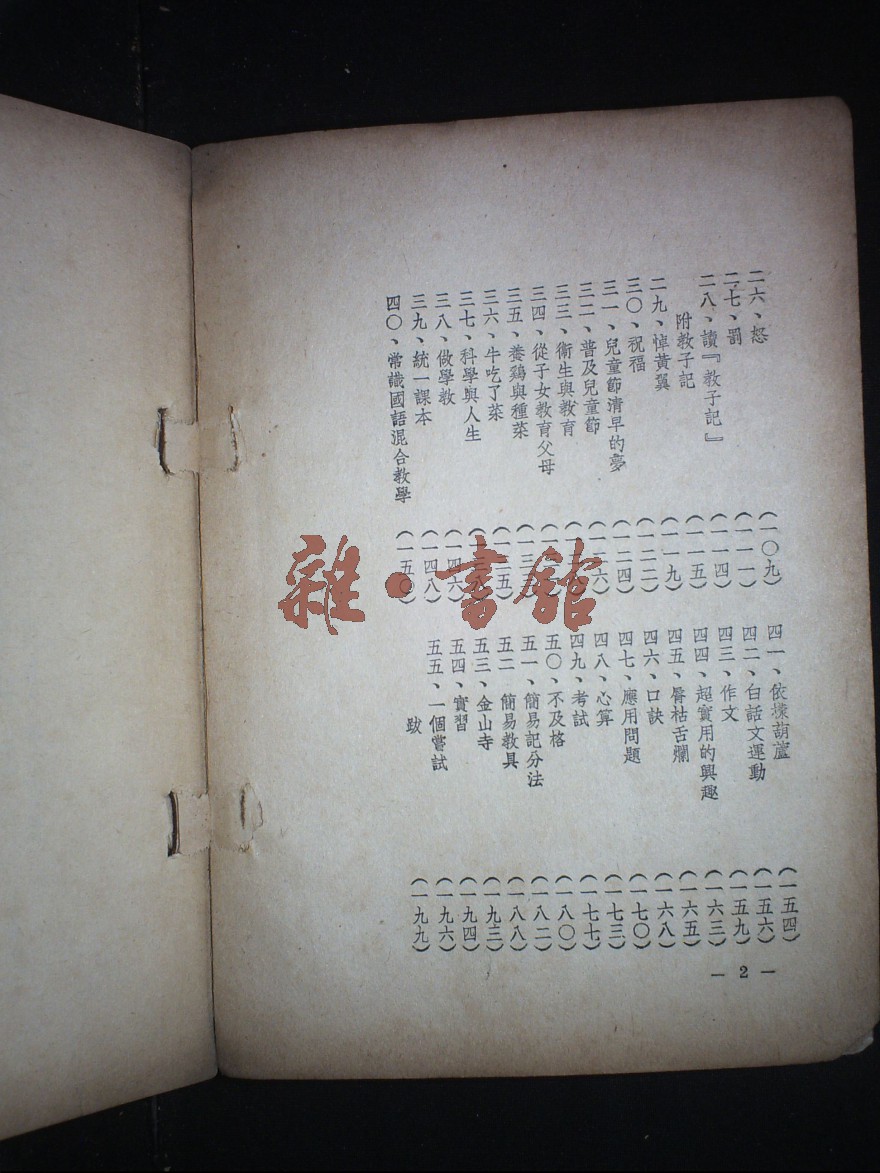 二六、怒 (一〇九)
二七、罰 (一一一)
二八、讀『教子記』 (一一四)
附教子記 (一一五)
二九、悼黃翼 (一一九)
三〇、祝福 (一二二)
三一、兒童節清早的夢 (一二四)
三二、普及兒童節 (一二六)
三三、衛生與教育
三四、從子女教育父母
三五、養鷄與種菜
三六、牛吃了菜 (一三五)
三七、科學與人生 (一三八)
三八、做學教 (一四六)
三九、統一課本 (一四八)
四〇、常識國語混合教學 (一五〇)
四一、依樣葫蘆 (一五四)
四二、白話文運動 (一五六)
四三、作文 (一五九)
四四、超實用的興趣 (一六三)
四五、脣枯舌爛 (一六五)
四六、口訣 (一六八)
四七、應用問題 (一七〇)
四八、心算 (一七三)
四九、考試 (一七七)
五〇、不及格 (一八〇)
五一、簡易記分法 (一八二)
五二、簡易教具 (一八八)
五三、金山寺 (一九三)
五四、實習 (一九四)
五五、一個嘗試 (一九六)
跋 (一九九)
— 2 —
雜·書舘